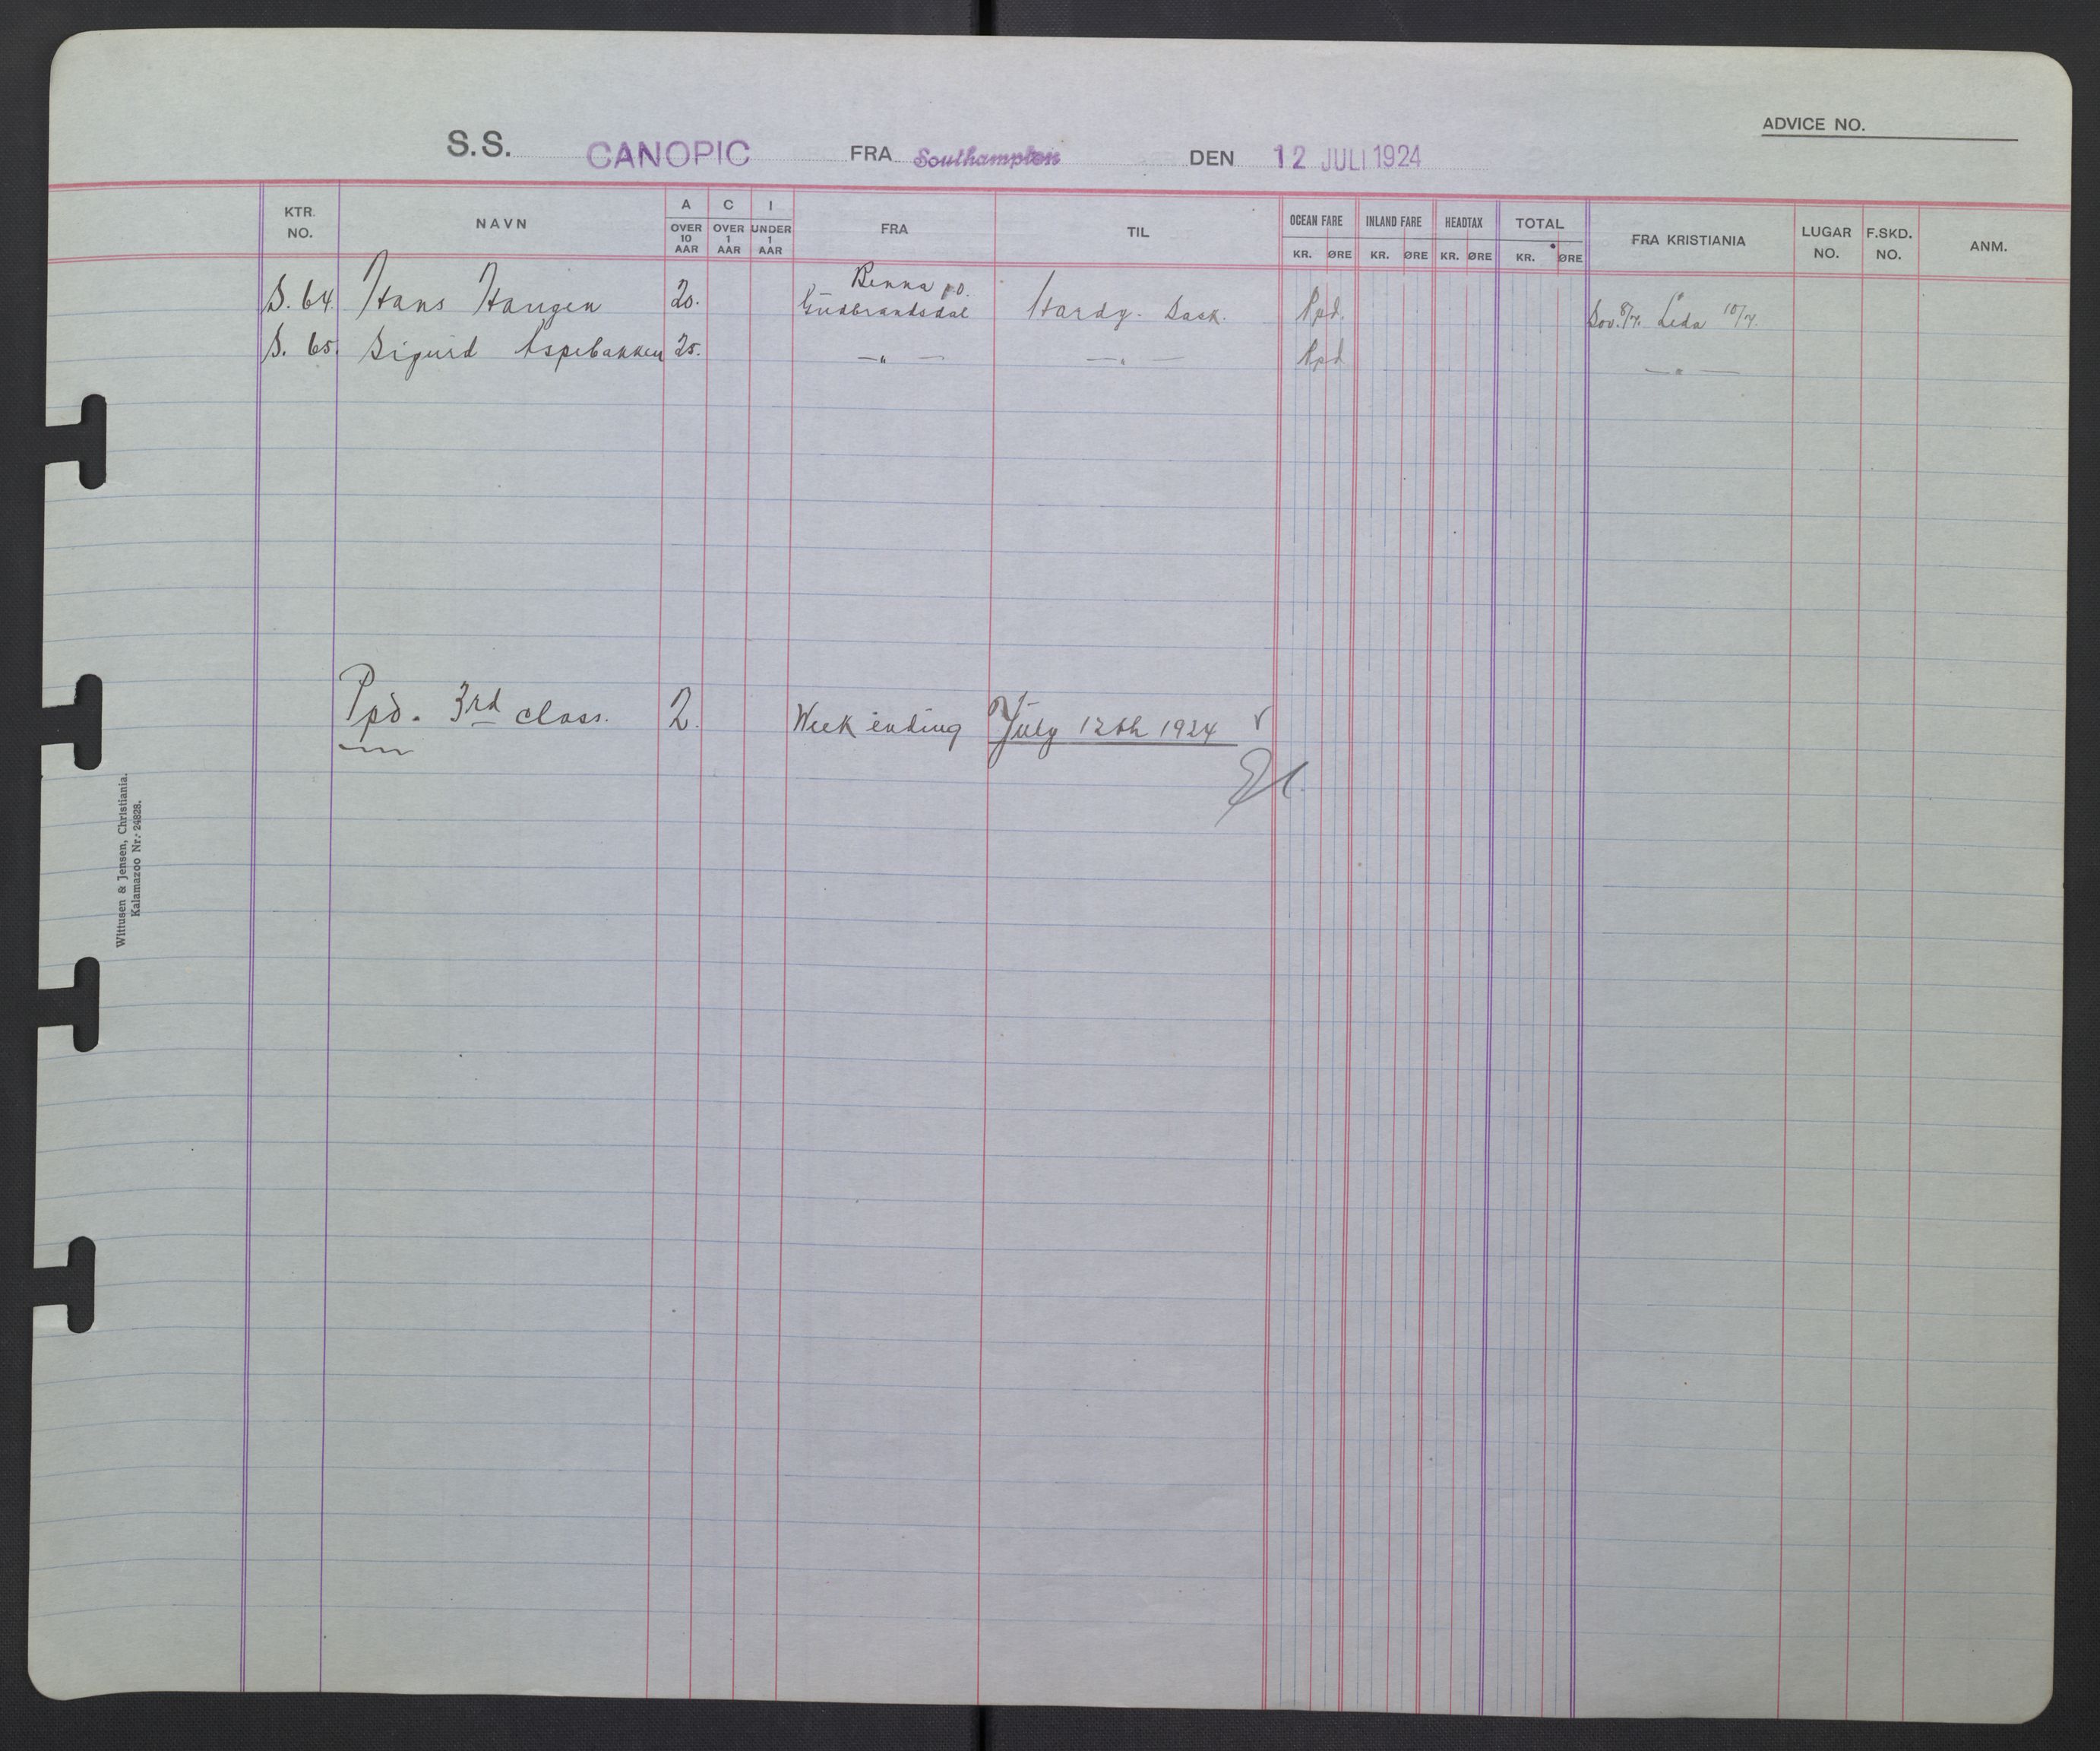 ADVICE NO.
S.S. CANOPIC FRA Southampton DEN 12 JULI 1924
KTR. NO. NAVN A OVER 10 AAR C OVER 1 AAR I UNDER 1 AAR FRA TIL OCEAN FARE KR. ØRE INLAND FARE KR. ØRE HEADTAX KR. ØRE TOTAL KR. ØRE FRA KRISTIANIA LUGAR NO. F.SKD. NO. ANM.
S. 64. Hans Haugen 20. Renna p.o. Gudbrandsdal Hardy. Sask. Ppd. 8/7. Leda 10/7.
S. 65. Sigurd Aspebakken 25. —„— —„— Ppd —„—
Ppd. 3rd class. 2. Week ending July 12th 1924 √
Wittusen & Jensen, Christiania.
Kalamazoo Nr. 24828.